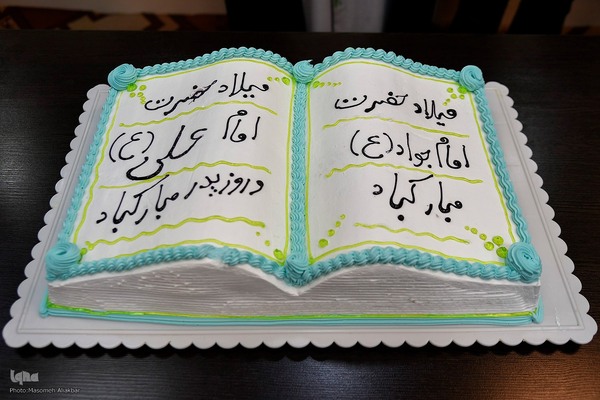 میلاد حضرت
امام جواد (ع)
مبارکباد
میلاد حضرت
امام علی (ع)
و روز پدر مبارکباد
ایکنا
Photo:Masomeh Aliakbar